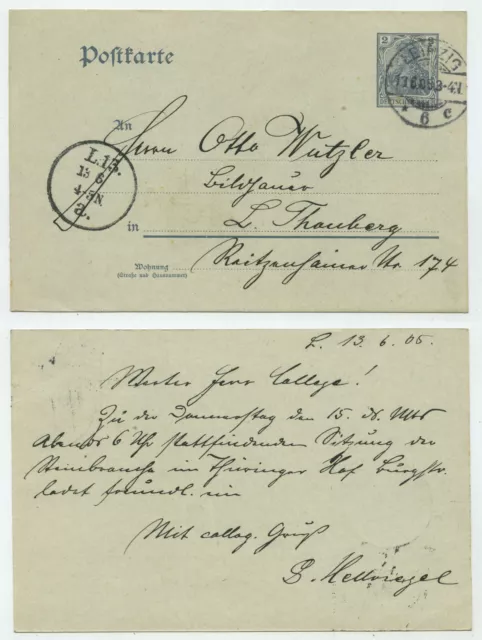 Postkarte
2
LEIPZIG
13.6.05 3-4N
* 6 c
DEUTSCHES
L.13.
13 6
4-5N
a.
An
Herrn Otto Wutzler
Bildhauer
in L. Thonberg
Wohnung
(Straße und Hausnummer)
Reitzenhainer Str 174
L. 13. 6. 05.
Werter Herr College!
Zu der Donnerstag den 15. ds. Mts
Abends 6 Uhr stattfindenden Sitzung der
Steinbranche im Thüringer Hof Burgstr.
ladet freundl. ein
Mit colleg. Gruß